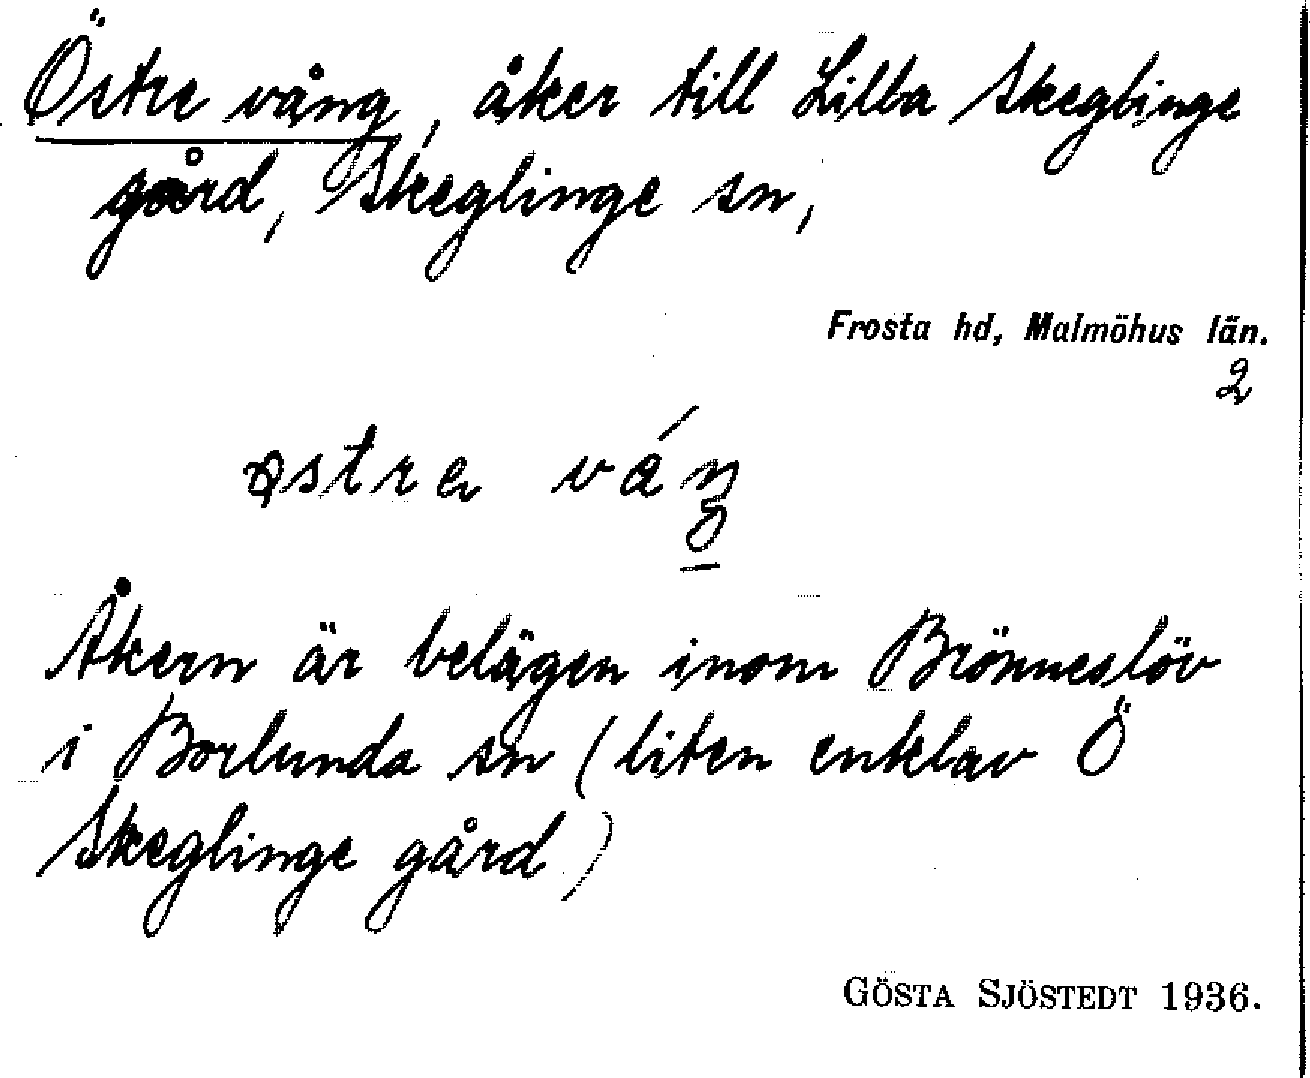 Östre vång, åker till Lilla Skeglinge
gård, Skeglinge sn,
Frosta hd, Malmöhus län.
2
Åkern är belägen inom Brönneslöv
i Borlunda sn (liten enklav Ö
Skeglinge gård)
GÖSTA SJÖSTEDT 1936.